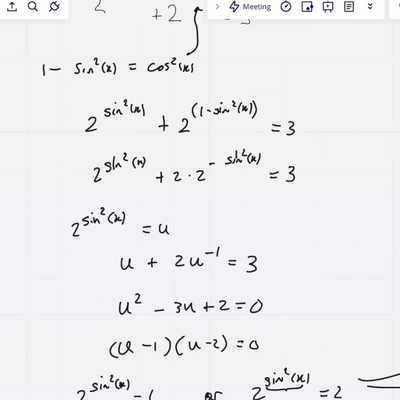 2 +2
Meeting
1 - sin²(x) = cos²(x)
2^sin²(x) + 2^(1-sin²(x)) = 3
2^sin²(x) + 2·2^-sin²(x) = 3
2^sin²(x) = u
u + 2u⁻¹ = 3
u² - 3u + 2 = 0
(u-1)(u-2) = 0
2^sin²(x) or 2^sin²(x) = 2